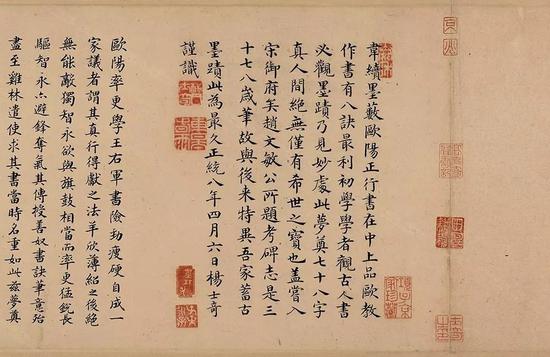 韋續墨藪歐陽正行書在中上品歐教
作書有八訣最利初學學者觀古人書
必觀墨蹟乃見妙處此夢奠七十八字
真人間絕無僅有希世之寶也蓋嘗入
宋御府矣趙文敏公所題考碑志是三
十七八歲筆故與後來特異吾家蓄古
墨蹟此為最久正統八年四月六日楊士奇
謹識
歐陽率更學王右軍書險勁瘦硬自成一
家議者謂其真行得獻之法羊欣薄紹之後絕
無能敵獨智永欲與旗鼓相當而率更猛銳長
驅智永亦避鋒奪氣其傳授善奴書訣筆意殆
盡至雞林遣使求其書當時名重如此茲夢奠
項子京家珍藏